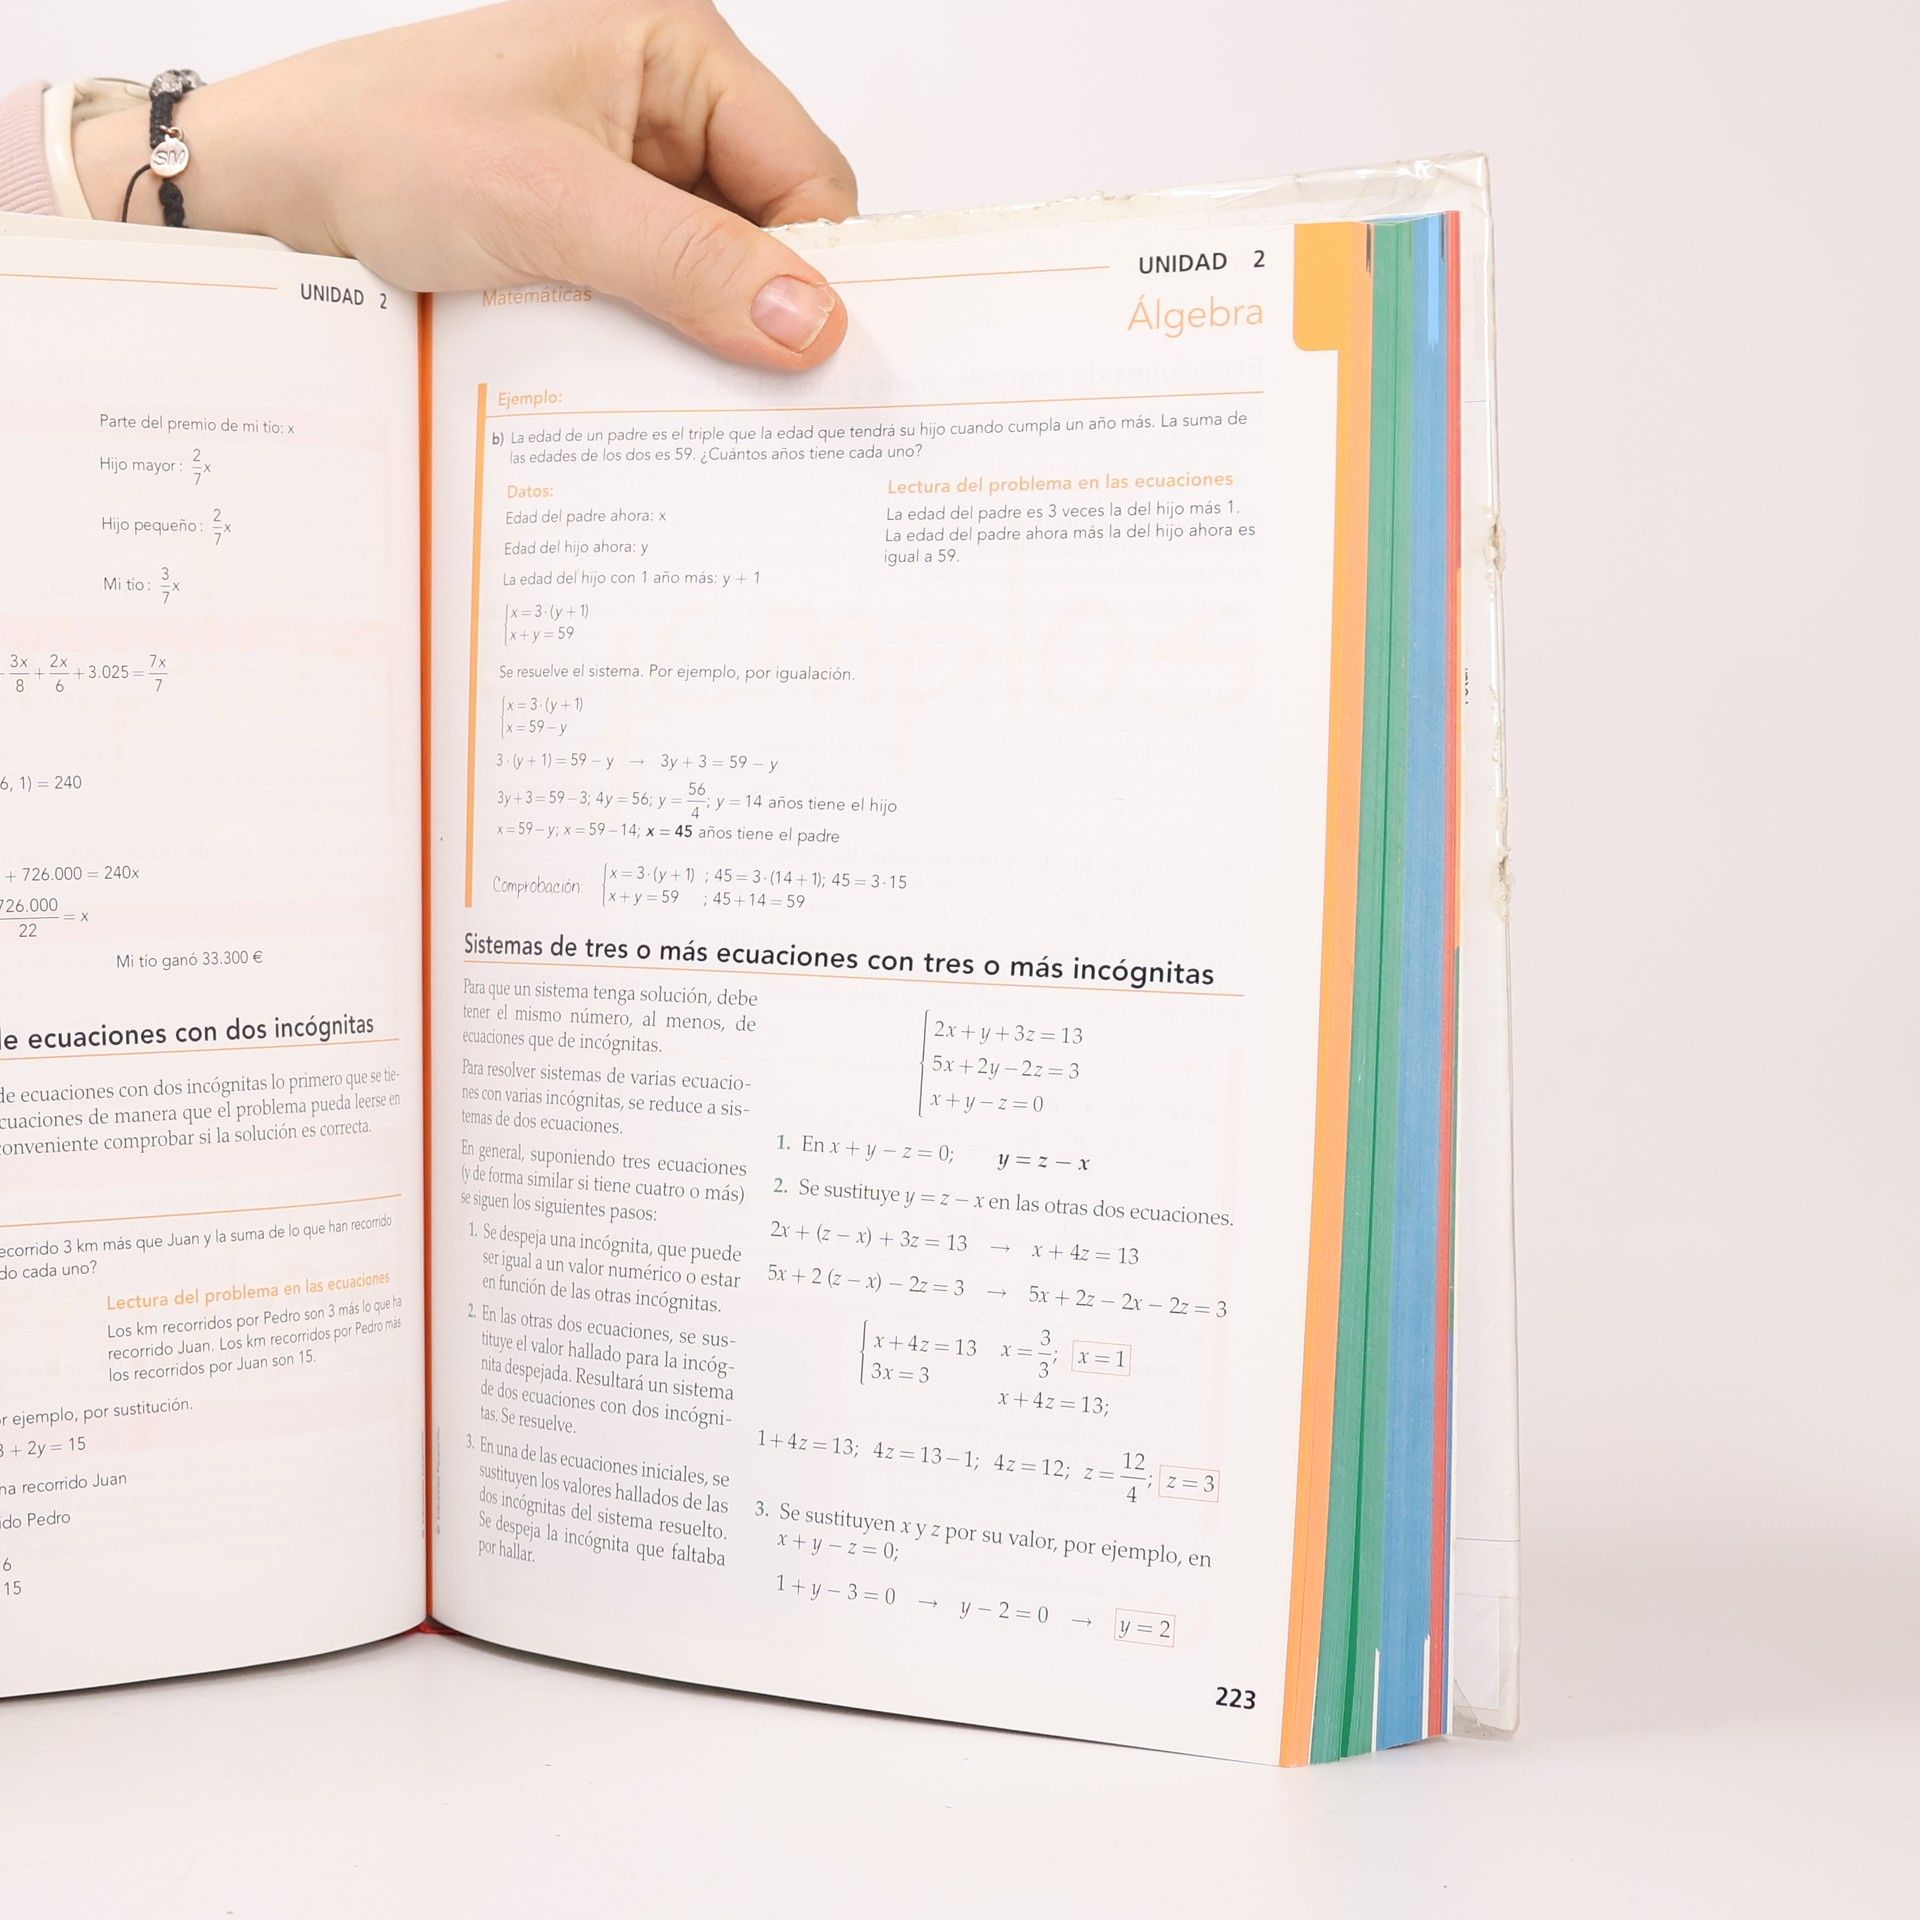 SM
UNIDAD 2
Parte del premio de mi tío: x
Hijo mayor: 2/7 x
Hijo pequeño: 2/7 x
Mi tío: 3/7 x
3x/8 + 2x/6 + 3.025 = 7x/7
6, 1) = 240
+ 726.000 = 240x
726.000/22 = x
Mi tío ganó 33.300 €
de ecuaciones con dos incógnitas
de ecuaciones con dos incógnitas lo primero que se tie-
cuaciones de manera que el problema pueda leerse en
conveniente comprobar si la solución es correcta.
ecorrido 3 km más que Juan y la suma de lo que han recorrido
do cada uno?
Lectura del problema en las ecuaciones
Los km recorridos por Pedro son 3 más lo que ha
recorrido Juan. Los km recorridos por Pedro más
los recorridos por Juan son 15.
r ejemplo, por sustitución.
3 + 2y = 15
ha recorrido Juan
ido Pedro
6
15
UNIDAD 2
Matemáticas
Álgebra
Ejemplo:
b) La edad de un padre es el triple que la edad que tendrá su hijo cuando cumpla un año más. La suma de
las edades de los dos es 59. ¿Cuántos años tiene cada uno?
Datos:
Edad del padre ahora: x
Edad del hijo ahora: y
La edad del hijo con 1 año más: y + 1
Lectura del problema en las ecuaciones
La edad del padre es 3 veces la del hijo más 1.
La edad del padre ahora más la del hijo ahora es
igual a 59.
x = 3·(y + 1)
x + y = 59
Se resuelve el sistema. Por ejemplo, por igualación.
x = 3·(y + 1)
x = 59 – y
3·(y + 1) = 59 – y → 3y + 3 = 59 – y
3y + 3 = 59 – 3; 4y = 56; y = 56/4; y = 14 años tiene el hijo
x = 59 – y; x = 59 – 14; x = 45 años tiene el padre
Comprobación: x = 3·(y + 1) ; 45 = 3·(14 + 1); 45 = 3·15
x + y = 59 ; 45 + 14 = 59
Sistemas de tres o más ecuaciones con tres o más incógnitas
Para que un sistema tenga solución, debe
tener el mismo número, al menos, de
ecuaciones que de incógnitas.
Para resolver sistemas de varias ecuacio-
nes con varias incógnitas, se reduce a sis-
temas de dos ecuaciones.
En general, suponiendo tres ecuaciones
(y de forma similar si tiene cuatro o más)
se siguen los siguientes pasos:
1. Se despeja una incógnita, que puede
ser igual a un valor numérico o estar
en función de las otras incógnitas.
2. En las otras dos ecuaciones, se sus-
tituye el valor hallado para la incóg-
nita despejada. Resultará un sistema
de dos ecuaciones con dos incógni-
tas. Se resuelve.
3. En una de las ecuaciones iniciales, se
sustituyen los valores hallados de las
dos incógnitas del sistema resuelto.
Se despeja la incógnita que faltaba
por hallar.
2x + y + 3z = 13
5x + 2y – 2z = 3
x + y – z = 0
1. En x + y – z = 0; y = z – x
2. Se sustituye y = z – x en las otras dos ecuaciones.
2x + (z – x) + 3z = 13 → x + 4z = 13
5x + 2 (z – x) – 2z = 3 → 5x + 2z – 2x – 2z = 3
x + 4z = 13 x = 3/3; x = 1
3x = 3
x + 4z = 13;
1 + 4z = 13; 4z = 13 – 1; 4z = 12; z = 12/4; z = 3
3. Se sustituyen x y z por su valor, por ejemplo, en
x + y – z = 0;
1 + y – 3 = 0 → y – 2 = 0 → y = 2
223